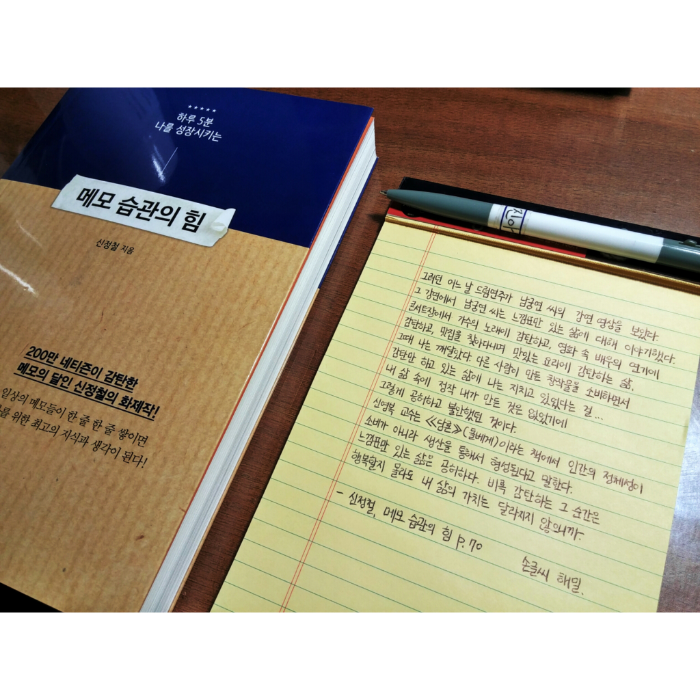 ★★★★★
하루 5분
나를 성장시키는
메모 습관의 힘
신정철 지음
200만 네티즌이 감탄한
메모의 달인 신정철의 화제작!
일상의 메모들이 한 줄 한 줄 쌓이면
를 위한 최고의 지식과 생각이 된다!
그러던 어느 날 드럼연주가 남궁연 씨의 강연 영상을 보았다.
그 강연에서 남궁연 씨는 느낌표만 있는 삶에 대해 이야기했다.
콘서트장에서 가수의 노래에 감탄하고, 영화 속 배우의 연기에
감탄하고, 맛집을 찾아다니며 맛있는 요리에 감탄하는 삶.
그때 나는 깨달았다. 다른 사람이 만든 창작물을 소비하면서
감탄만 하고 있는 삶에 나는 지치고 있었다는 걸...
내 삶 속에 정작 내가 만든 것은 없었기에
그렇게 공허하고 불안했던 것이다.
신영복 교수는 《담론》(돌베개)이라는 책에서 인간의 정체성이
소비가 아니라 생산을 통해서 형성된다고 말한다.
느낌표만 있는 삶은 공허하다. 비록 감탄하는 그 순간은
행복할지 몰라도 내 삶의 가치는 달라지지 않으니까.
- 신정철, 메모 습관의 힘 P.70
손글씨 해밀.